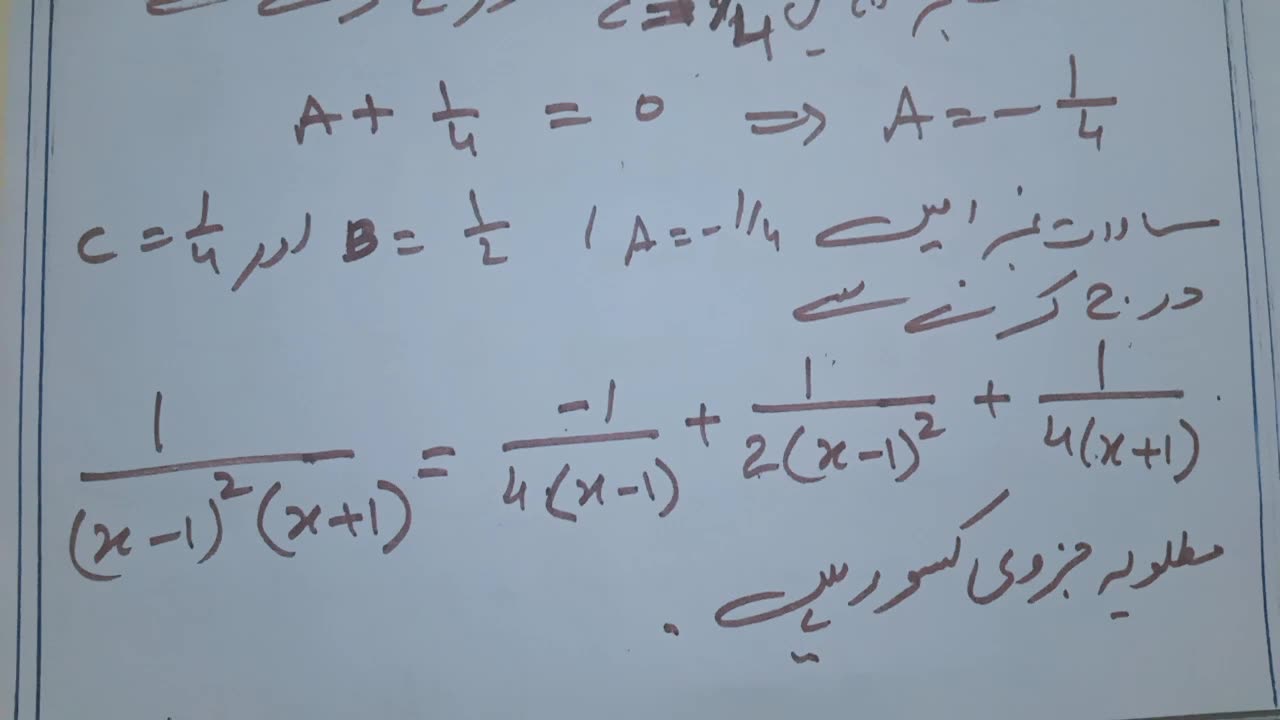 C = 1/4
A + 1/4 = 0 ⇒ A = - 1/4
مساوات نمبر i میں A = -1/4 ، B = 1/2 اور C = 1/4
درج کرنے سے
1/((x-1)²(x+1)) = -1/(4(x-1)) + 1/(2(x-1)²) + 1/(4(x+1))
مطلوبہ جزوی کسور ہیں ۔